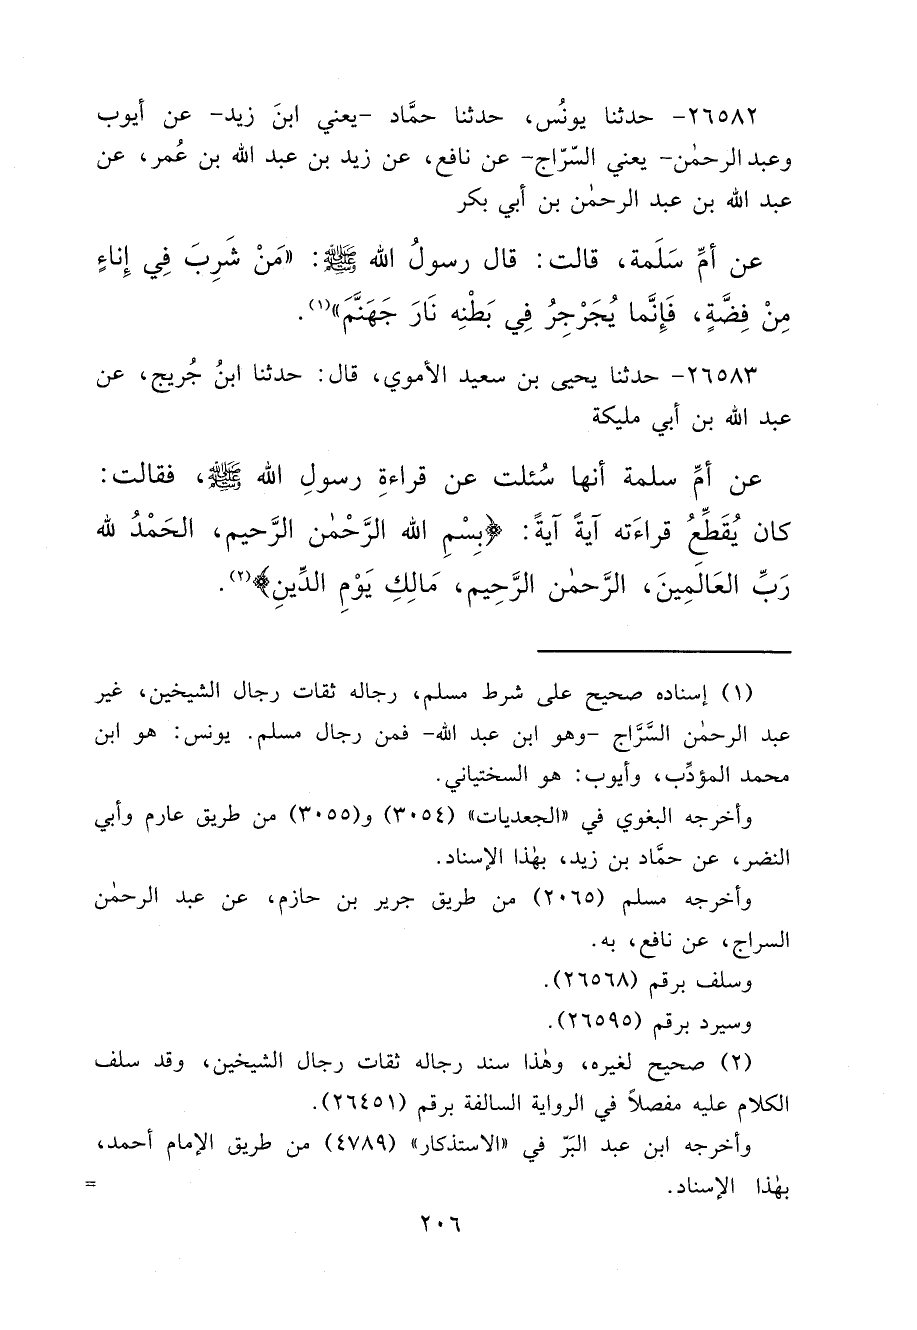 ٢٦٥٨٢- حدثنا يونُس، حدثنا حمَّاد -يعني ابنَ زيد- عن أيوب
وعبد الرحمٰن- يعني السّرّاج- عن نافع، عن زيد بن عبد الله بن عُمر، عن
عبد الله بن عبد الرحمٰن بن أبي بكر
عن أمِّ سَلَمة، قالت: قال رسولُ الله ﷺ: «مَنْ شَرِبَ فِي إِناءٍ
مِنْ فِضَّةٍ، فَإِنَّما يُجَرْجِرُ فِي بَطْنِه نَارَ جَهَنَّمَ»(١).
٢٦٥٨٣- حدثنا يحيى بن سعيد الأموي، قال: حدثنا ابنُ جُريج، عن
عبد الله بن أبي مليكة
عن أمِّ سلمة أنها سُئلت عن قراءةِ رسولِ الله ﷺ، فقالت:
كان يُقَطِّعُ قراءَته آيةً آيةً: ﴿بِسْمِ الله الرَّحْمٰن الرَّحيم، الحَمْدُ لله
رَبِّ العَالَمِينَ، الرَّحمٰن الرَّحِيم، مَالِكِ يَوْمِ الدِّينِ﴾(٢).
(١) إسناده صحيح على شرط مسلم، رجاله ثقات رجال الشيخين، غير
عبد الرحمٰن السَّرَّاج -وهو ابن عبد الله- فمن رجال مسلم. يونس: هو ابن
محمد المؤدِّب، وأيوب: هو السختياني.
وأخرجه البغوي في «الجعديات» (٣٠٥٤) و(٣٠٥٥) من طريق عارم وأبي
النضر، عن حمَّاد بن زيد، بهٰذا الإسناد.
وأخرجه مسلم (٢٠٦٥) من طريق جرير بن حازم، عن عبد الرحمٰن
السراج، عن نافع، به.
وسلف برقم (٢٦٥٦٨).
وسيرد برقم (٢٦٥٩٥).
(٢) صحيح لغيره، وهٰذا سند رجاله ثقات رجال الشيخين، وقد سلف
الكلام عليه مفصلاً في الرواية السالفة برقم (٢٦٤٥١).
وأخرجه ابن عبد البَرّ في «الاستذكار» (٤٧٨٩) من طريق الإمام أحمد،
بهٰذا الإسناد. =
٢٠٦